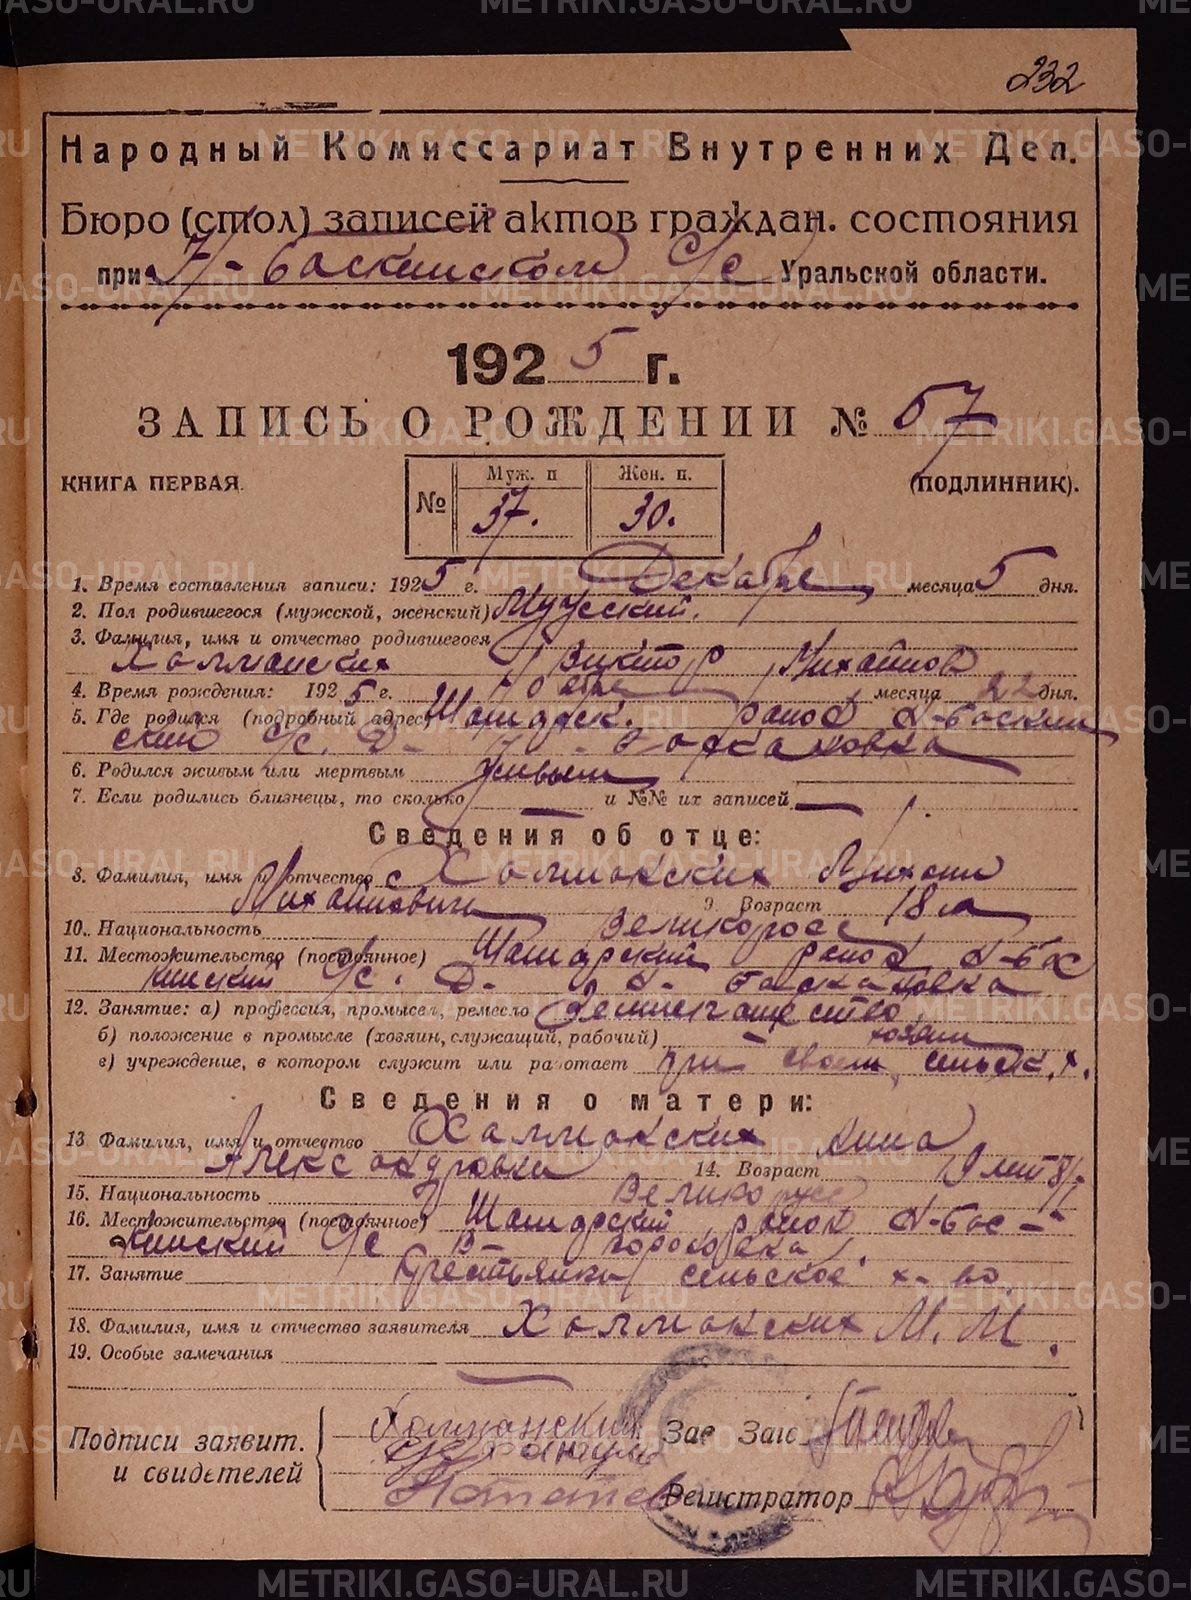 232
Народный Комиссариат Внутренних Дел.
Бюро (стол) записей актов граждан. состояния
при Н-Баскинском с/с Уральской области.
1925 г.
ЗАПИСЬ О РОЖДЕНИИ № 67
КНИГА ПЕРВАЯ. (ПОДЛИННИК).
№ Муж. п Жен. п.
37. 30.
1. Время составления записи: 1925 г. Декабре месяца 5 дня.
2. Пол родившегося (мужской, женский) Мужский.
3. Фамилия, имя и отчество родившегося
Холманских Виктор Михайлов
4. Время рождения: 1925 г. месяца 22 дня.
5. Где родился (подробный адрес) район Н-Баскин
ский с/с. Д-
6. Родился живым или мертвым живым
7. Если родились близнецы, то сколько — и №№ их записей —
Сведения об отце:
8. Фамилия, имя и отчество Холманских Михаил
Михайлович 9. Возраст 18 л
10. Национальность Великоросс
11. Местожительство (постоянное) район Н-Бас
кинский с/с. Д- Н-Баскаковка
12. Занятие: а) профессия, промысел, ремесло Землепашество
б) положение в промысле (хозяин, служащий, рабочий) — хозяин
в) учреждение, в котором служит или работает при своем сельск. х.
Сведения о матери:
13 Фамилия, имя и отчество Холманских Анна
Александровна 14. Возраст 19 лет
15. Национальность Великорусс
16. Местожительство (постоянное) район Н-Бас-
кинский с/с
17. Занятие Крестьянка сельское х-во
18. Фамилия, имя и отчество заявителя Холманских М. М.
19. Особые замечания —
Подписи заявит.
и свидетелей
Холманский
Зав Загс
Регистратор
METRIKI.GASO-URAL.RU